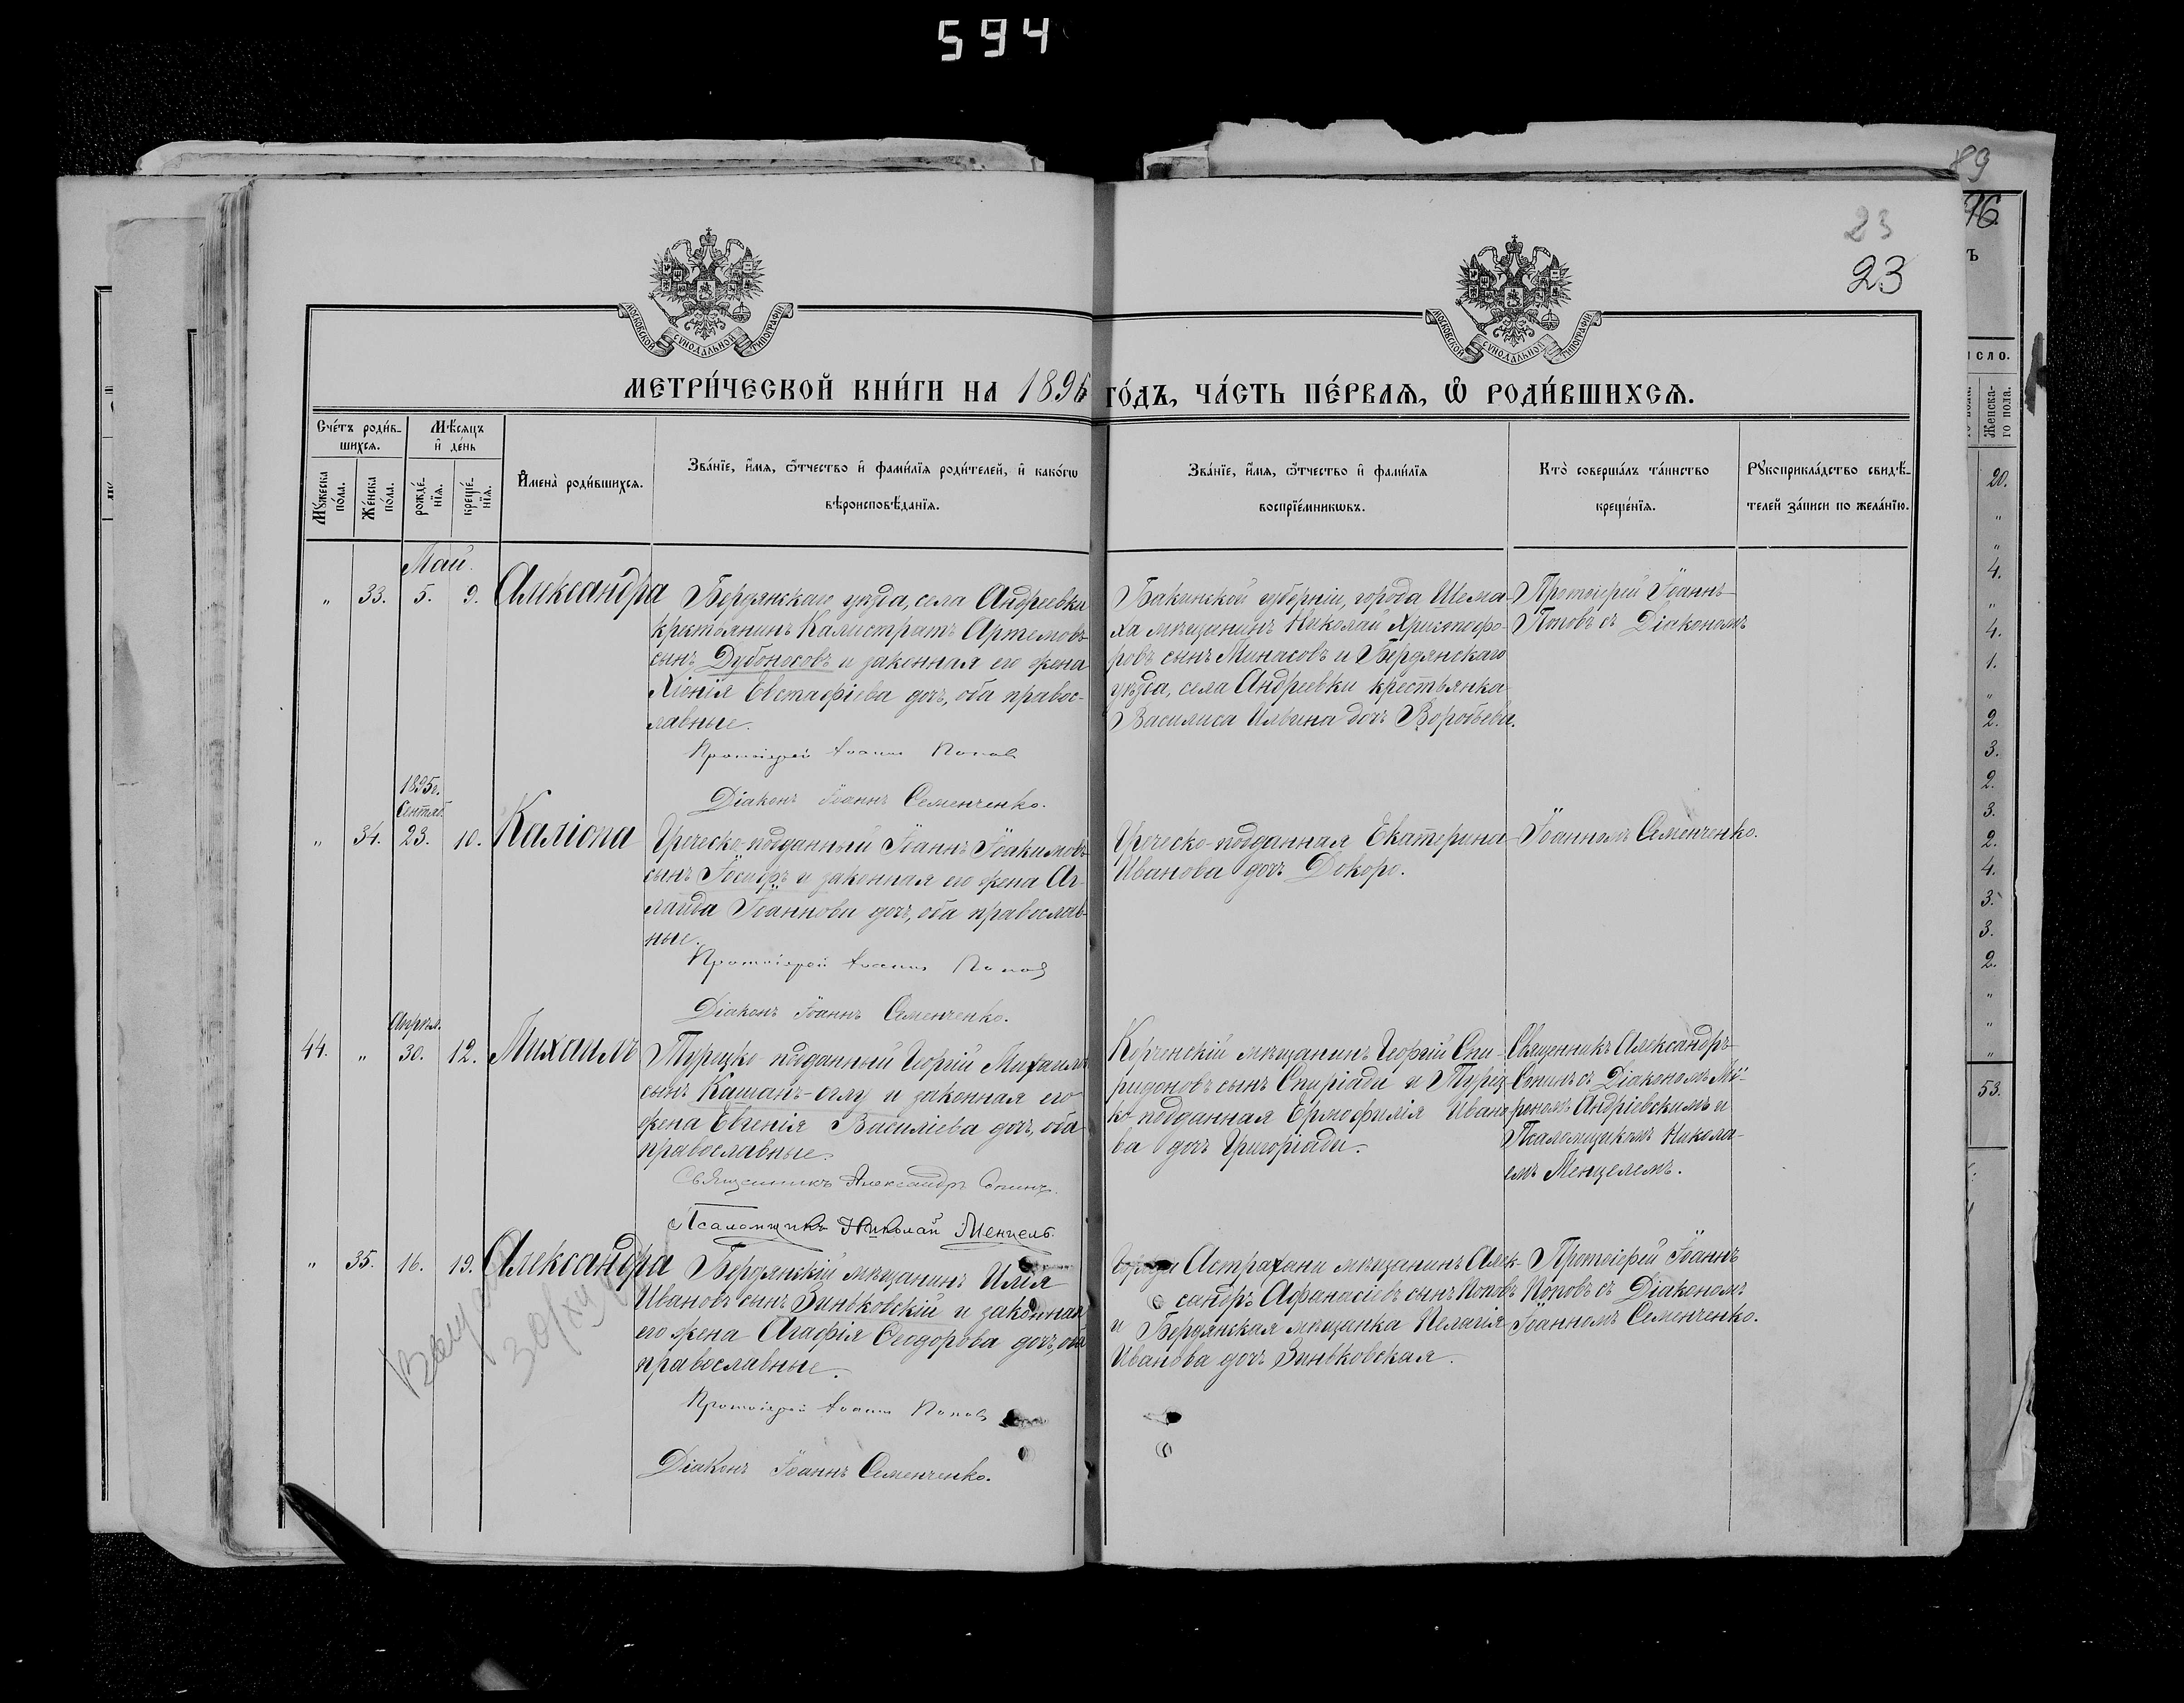 594
89
23
23
96
МОСКОВСКОЙ СѴНОДАЛЬНОЙ ТИПОГРАФІИ
МОСКОВСКОЙ СѴНОДАЛЬНОЙ ТИПОГРАФІИ
МЕТРИ́ЧЕСКОЙ КНИ́ГИ НА 1896 ГО́ДЪ, ЧА́СТЬ ПЕ́РВАѦ, Ѡ҆ РОДИ́ВШИХСѦ.
Сче́тъ роди́в-
шихсѧ.
Мѣ́сѧцъ
и҆ де́нь
Мꙋ́жеска
по́ла.
Же́нска
по́ла.
рожде́-
нїѧ.
креще́-
нїѧ.
И҆мена̀ роди́вшихсѧ.
Зва́нїе, и҆́мѧ, ѻ҆́тчество и҆ фами́лїѧ роди́телей, и҆ како́гѡ
вѣроисповѣ́данїѧ.
Зва́нїе, и҆́мѧ, ѻ҆́тчество и҆ фами́лїѧ
воспрїе́мникѡвъ.
Кто̀ соверша́лъ та́инство
креще́нїѧ.
Рꙋкоприкла́дство свидѣ́-
телей за́писи по жела́нїю.
Май.
" 33. 5. 9. Александра
Бердянскаго уѣзда, села Андреевки
крестьянинъ Калистратъ Артемовъ
сынъ Дубоносовъ и законная его жена
Хіонія Евстафіева дочь, оба правос-
лавные.
Протоіерей Іоаннъ Поповъ
Діаконъ Іоаннъ Семенченко.
Бакинской губерніи, города Шема-
ха мѣщанинъ Николай Христофо-
ровъ сынъ Минасовъ и Бердянскаго
уѣзда, села Андреевки крестьянка
Василиса Ильина дочь Воробьева.
Протоіерей Іоаннъ
Поповъ съ Діакономъ
1895г.
Сентяб.
" 34. 23. 10. Каліопа
Греческо-подданный Іоаннъ Іоакимовъ
сынъ Іосифъ и законная его жена Аг-
лаида Іоаннова дочь, оба православ-
ные.
Протоіерей Іоаннъ Поповъ
Діаконъ Іоаннъ Семенченко.
Греческо-подданная Екатерина
Иванова дочь Докоро.
Іоанномъ Семенченко.
Апрѣл.
44. " 30. 12. Михаилъ
Турецко-подданный Георгій Михаиловъ
сынъ Кашанъ-оглу и законная его
жена Евгенія Василіева дочь, оба
православные.
Священникъ Александръ Сонинъ.
Псаломщикъ Николай Менцель.
Керченскій мѣщанинъ Георгій Спи-
ридоновъ сынъ Спиріади и Турец-
ко-подданная Ермофилія Ивано-
ва дочь Григоріади.
Священникъ Александръ
Сонинъ съ Діакономъ Мѵ-
рономъ Андріевскимъ и
Псаломщикомъ Никола-
емъ Менцелемъ.
" 35. 16. 19. Александра
Бердянскій мѣщанинъ Илія
Ивановъ сынъ Зиньковскій и законная
его жена Агафія Ѳеодорова дочь, оба
православные.
Протоіерей Іоаннъ Поповъ
Діаконъ Іоаннъ Семенченко.
Города Астрахани мѣщанинъ Алек-
сандръ Афанасіевъ сынъ Поповъ
и Бердянская мѣщанка Пелагія
Иванова дочь Зиньковская.
Протоіерей Іоаннъ
Поповъ съ Діакономъ
Іоанномъ Семенченко.
Ъ
исло.
Женска-
го пола.
20.
"
"
4.
"
4.
1.
"
2.
3.
2.
3.
2.
4.
3.
3.
2.
"
"
"
53.